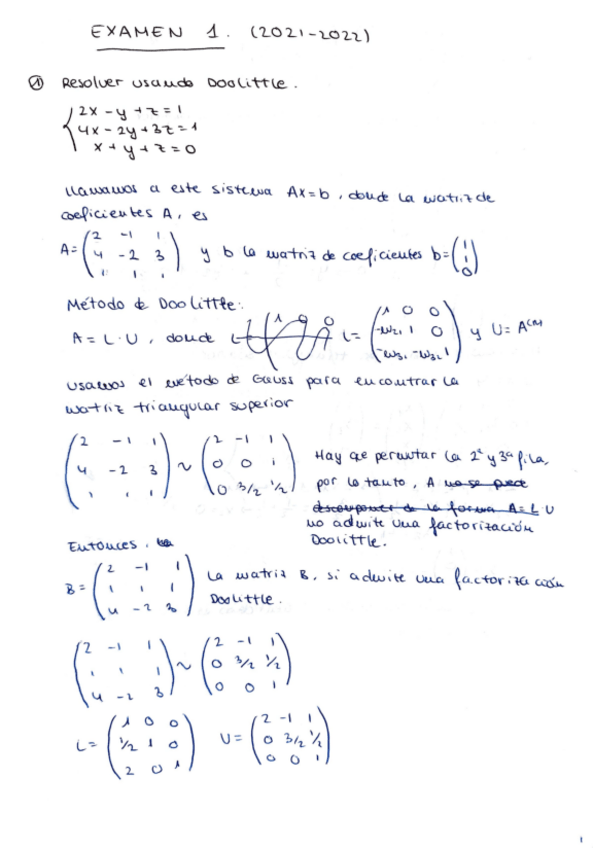 EXAMEN 1. (2021-2022)
① Resolver usando Doolittle.
2x - y + z = 1
4x - 2y + 3z = 1
x + y + z = 0
Llamamos a este sistema Ax=b, donde la matriz de
coeficientes A, es
A = (2 -1 1 / 4 -2 3 / 1 1 1) y b la matriz de coeficientes b = (1 / 1 / 0)
Método de Doolittle:
A = L·U, donde L = (1 0 0 / -m21 1 0 / -m31 -m32 1) y U = A
usamos el método de Gauss para encontrar la
matriz triangular superior
(2 -1 1 / 4 -2 3 / 1 1 1) ~ (2 -1 1 / 0 0 1 / 0 3/2 1/2)
Hay que permutar la 2ª y 3ª fila,
por lo tanto, A no se puede
descomponer de la forma A = L·U
no admite una factorización
Doolittle.
Entonces,
B = (2 -1 1 / 1 1 1 / 4 -2 3) La matriz B, si admite una factorización
Doolittle.
(2 -1 1 / 1 1 1 / 4 -2 3) ~ (2 -1 1 / 0 3/2 1/2 / 0 0 1)
L = (1 0 0 / 1/2 1 0 / 2 0 1) U = (2 -1 1 / 0 3/2 1/2 / 0 0 1)
1